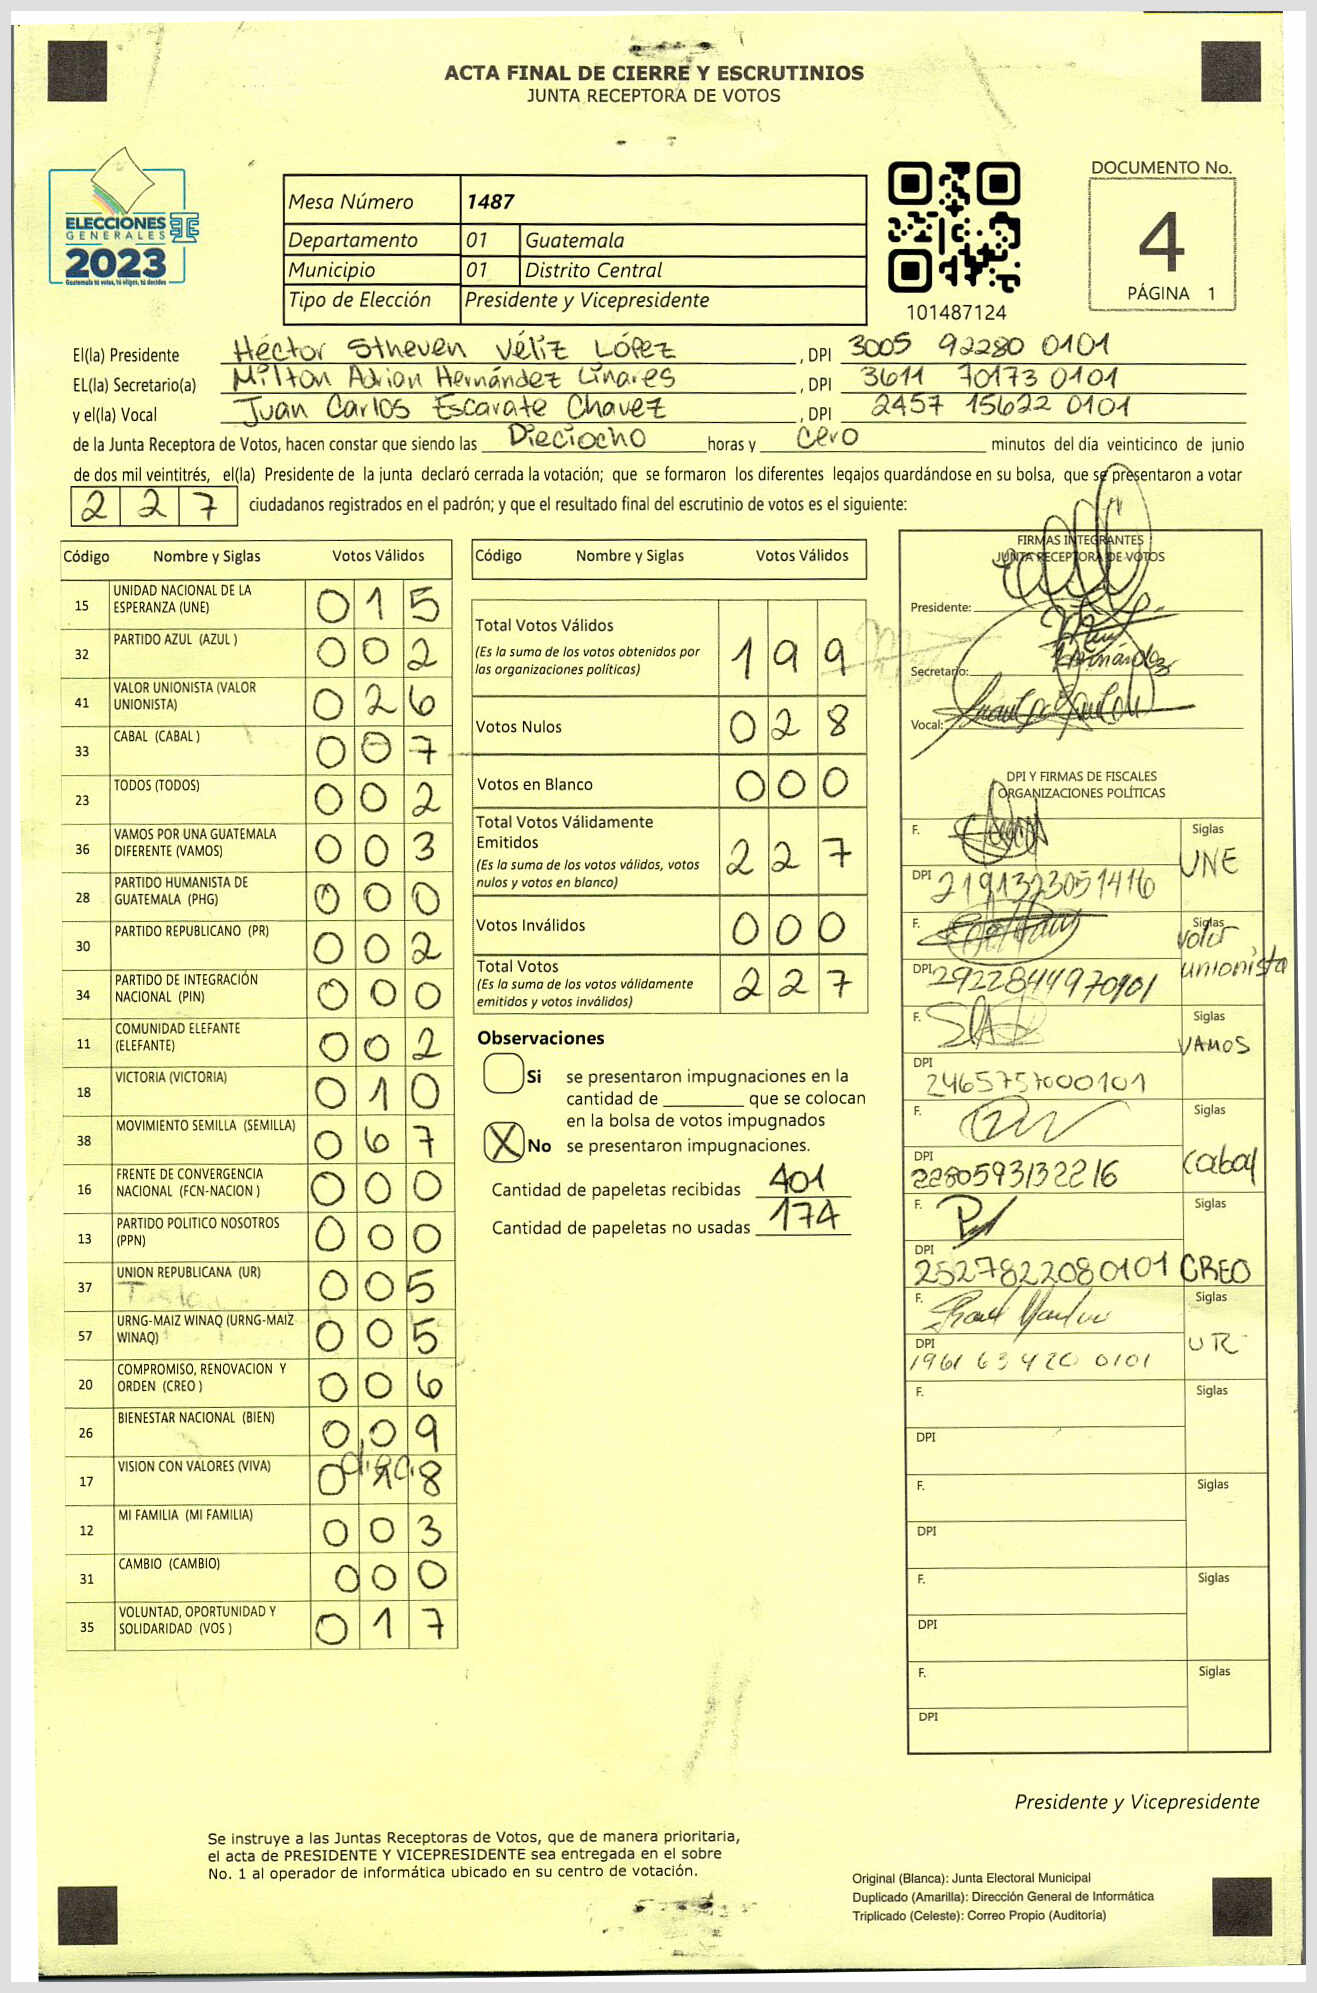 ACTA FINAL DE CIERRE Y ESCRUTINIOS
JUNTA RECEPTORA DE VOTOS
ELECCIONES
GENERALES
2023
Guatemala tú votas, tú eliges, tú decides
Mesa Número 1487
Departamento 01 Guatemala
Municipio 01 Distrito Central
Tipo de Elección Presidente y Vicepresidente
101487124
DOCUMENTO No.
4
PÁGINA 1
El(la) Presidente Héctor Stheven Véliz López, DPI 3005 92280 0101
EL(la) Secretario(a) Milton Adrian Hernández Linares, DPI 3611 70173 0101
y el(la) Vocal Juan Carlos Escarate Chavez, DPI 2457 15622 0101
de la Junta Receptora de Votos, hacen constar que siendo las Dieciocho horas y cero minutos del día veinticinco de junio
de dos mil veintitrés, el(la) Presidente de la junta declaró cerrada la votación; que se formaron los diferentes legajos guardándose en su bolsa, que se presentaron a votar
227 ciudadanos registrados en el padrón; y que el resultado final del escrutinio de votos es el siguiente:
Código Nombre y Siglas Votos Válidos
15 UNIDAD NACIONAL DE LA ESPERANZA (UNE) 015
32 PARTIDO AZUL (AZUL ) 002
41 VALOR UNIONISTA (VALOR UNIONISTA) 026
33 CABAL (CABAL ) 007
23 TODOS (TODOS) 002
36 VAMOS POR UNA GUATEMALA DIFERENTE (VAMOS) 003
28 PARTIDO HUMANISTA DE GUATEMALA (PHG) 000
30 PARTIDO REPUBLICANO (PR) 002
34 PARTIDO DE INTEGRACIÓN NACIONAL (PIN) 000
11 COMUNIDAD ELEFANTE (ELEFANTE) 002
18 VICTORIA (VICTORIA) 010
38 MOVIMIENTO SEMILLA (SEMILLA) 067
16 FRENTE DE CONVERGENCIA NACIONAL (FCN-NACION ) 000
13 PARTIDO POLITICO NOSOTROS (PPN) 000
37 UNION REPUBLICANA (UR) 005
57 URNG-MAIZ WINAQ (URNG-MAIZ WINAQ) 005
20 COMPROMISO, RENOVACION Y ORDEN (CREO ) 006
26 BIENESTAR NACIONAL (BIEN) 009
17 VISION CON VALORES (VIVA) 018
12 MI FAMILIA (MI FAMILIA) 003
31 CAMBIO (CAMBIO) 000
35 VOLUNTAD, OPORTUNIDAD Y SOLIDARIDAD (VOS ) 017
Código Nombre y Siglas Votos Válidos
Total Votos Válidos 199
(Es la suma de los votos obtenidos por
las organizaciones políticas)
Votos Nulos 028
Votos en Blanco 000
Total Votos Válidamente
Emitidos 227
(Es la suma de los votos válidos, votos
nulos y votos en blanco)
Votos Inválidos 000
Total Votos 227
(Es la suma de los votos válidamente
emitidos y votos inválidos)
Observaciones
Si se presentaron impugnaciones en la
cantidad de ________ que se colocan
en la bolsa de votos impugnados
X No se presentaron impugnaciones.
Cantidad de papeletas recibidas 401
Cantidad de papeletas no usadas 174
FIRMAS INTEGRANTES
JUNTA RECEPTORA DE VOTOS
Presidente:
Secretario:
Vocal:
DPI Y FIRMAS DE FISCALES
ORGANIZACIONES POLÍTICAS
F. Siglas UNE
DPI 2191323051416
F. Siglas valor unionista
DPI 2922844970101
F. Siglas VAMOS
DPI 2465757000101
F. Siglas Cabal
DPI 2280593132216
F. Siglas CREO
DPI 2527822080101
F. Siglas UR
DPI 1961 63420 0101
F. Siglas
DPI
F. Siglas
DPI
F. Siglas
DPI
F. Siglas
DPI
Presidente y Vicepresidente
Se instruye a las Juntas Receptoras de Votos, que de manera prioritaria,
el acta de PRESIDENTE Y VICEPRESIDENTE sea entregada en el sobre
No. 1 al operador de informática ubicado en su centro de votación.
Original (Blanca): Junta Electoral Municipal
Duplicado (Amarilla): Dirección General de Informática
Triplicado (Celeste): Correo Propio (Auditoría)